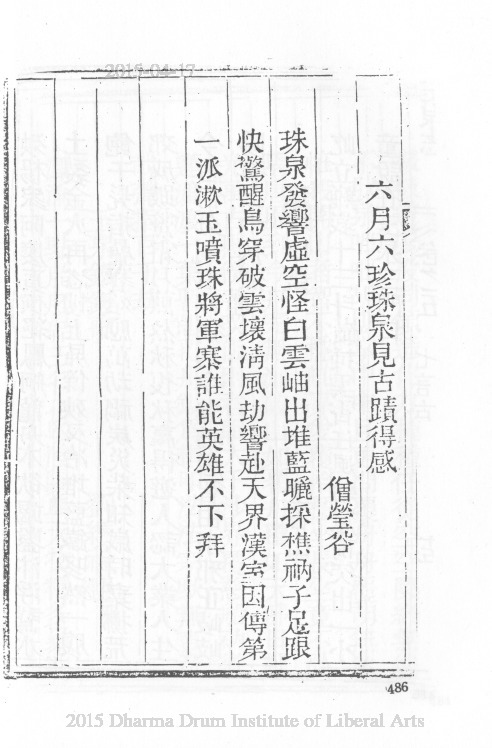 2015-04-17
六月六珍珠泉見古蹟得感
僧瑩谷
珠泉發響虛空怪白雲岫出堆藍曬採樵衲子足跟
快驚醒鳥穿破雲壞淸風劫響赴天界漢室因傳第
一派漱玉噴珠將軍寨誰能英雄不下拜
486
2015 Dharma Drum Institute of Liberal Arts